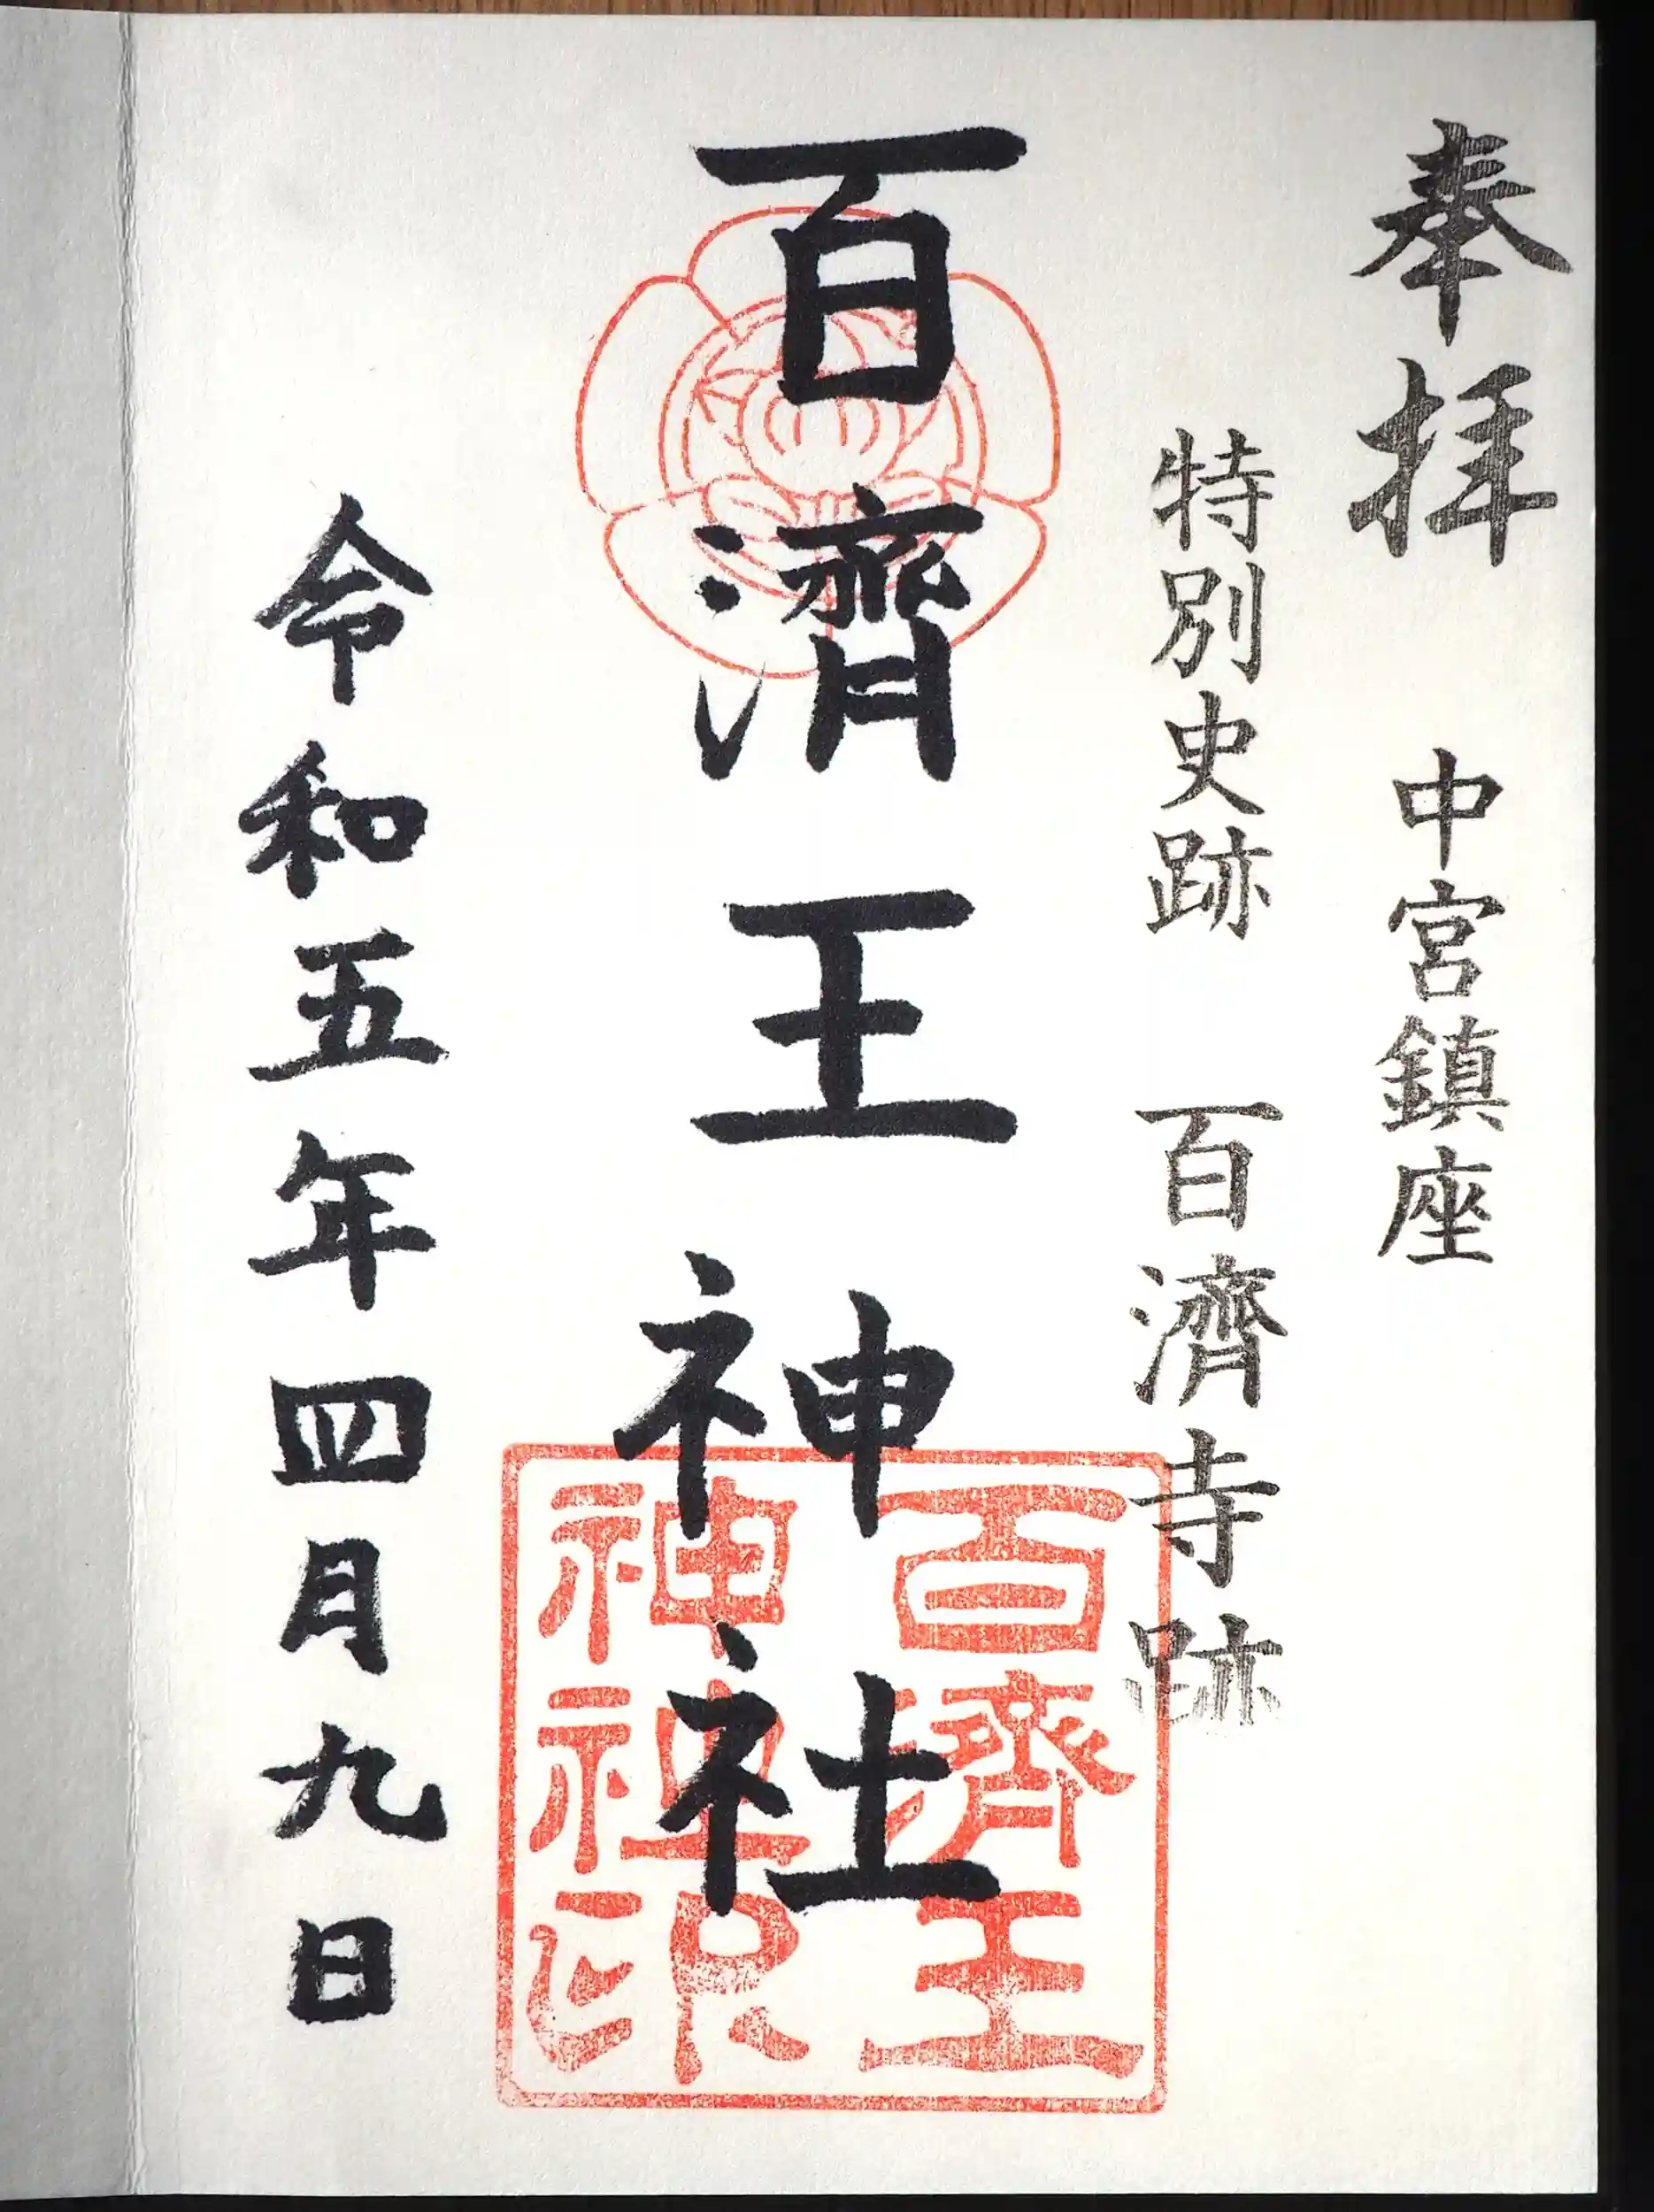 奉拝　中宮鎮座
特別史跡　百濟寺跡
百濟王神社
百濟王
神社印
令和五年四月九日